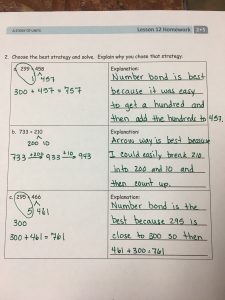 A STORY OF UNITS
Lesson 12 Homework 2•5
2. Choose the best strategy and solve. Explain why you chose that strategy.
a. 299 + 458
1 457
300 + 457 = 757
Explanation:
Number bond is best
because it was easy
to get a hundred and
then add the hundreds to 457.
b. 733 + 210
200 10
733 +200 933 +10 943
Explanation:
Arrow way is best because
I could easily break 210
into 200 and 10 and
then count up.
c. 295 + 466
5 461
300
300 + 461 = 761
Explanation:
Number bond is the
best because 295 is
close to 300 so then
461 + 300 = 761